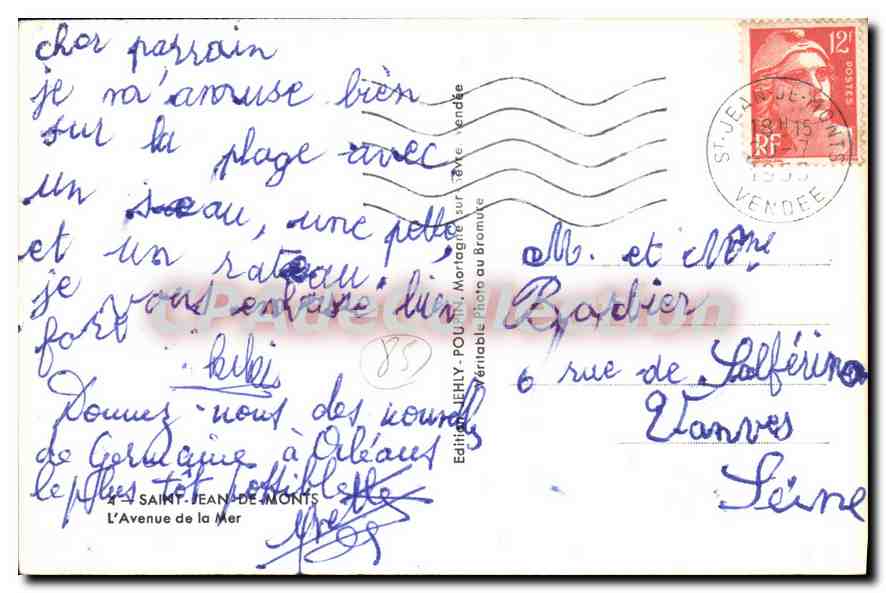 cher parrain
je m'amuse bien
sur la plage avec
un seau, une pelle,
et un rateau.
je vous embrasse bien
fort
kiki
Donnez-nous des nouvelles
de Germaine à Orléans
le plus tôt possible
Yvette
4 - SAINT-JEAN-DE-MONTS
L'Avenue de la Mer
Edition JEHLY-POUSSIN, Mortagne-sur-Sèvre, Vendée
Véritable Photo au Bromure
12F
POSTES
RF
ST-JEAN-DE-MONTS
18H15
VENDEE
M. et Mme
Barbier
6 rue de Solférino
Vanves
Seine
85
CPADeCollection